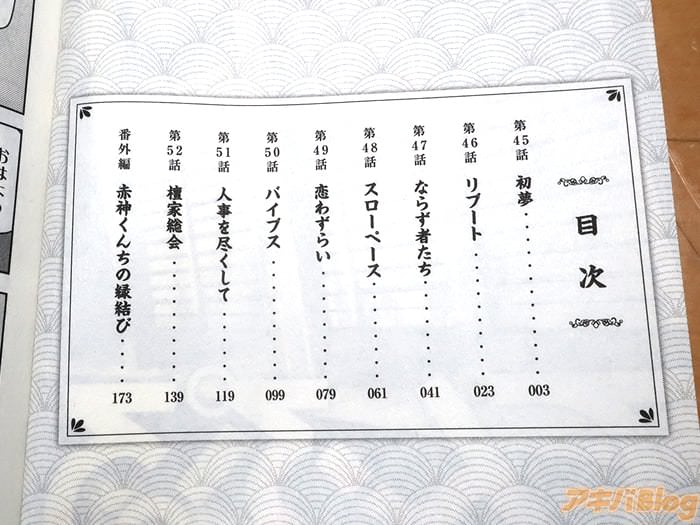 目次
第45話 初夢・・・・・・・・・・・・ 003
第46話 リブート・・・・・・・・・・ 023
第47話 ならず者たち・・・・・・・ 041
第48話 スローペース・・・・・・・ 061
第49話 恋わずらい・・・・・・・・ 079
第50話 バイブス・・・・・・・・・ 099
第51話 人事を尽くして・・・・・・ 119
第52話 檀家総会・・・・・・・・・ 139
番外編 赤神くんちの縁結び・・・・ 173
おはよう
アキバBlog